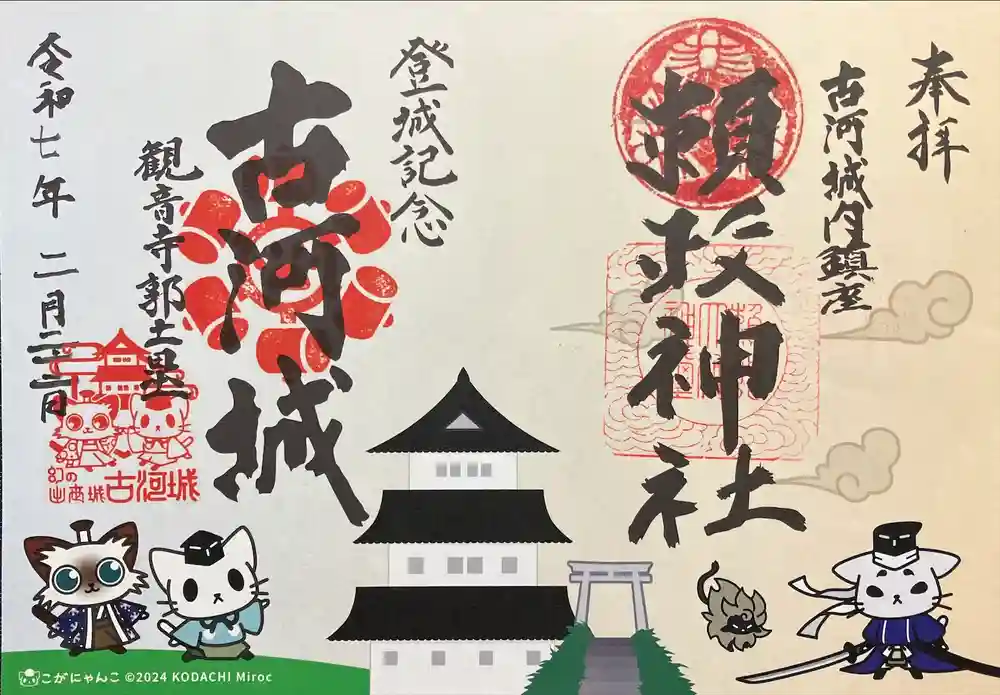 奉拝
古河城内鎮座
頼政神社
登城記念
古河城
観音寺郭土塁
令和七年 二月二十二日
幻の
出産城 古河城
こがにゃんこ ©2024 KODACHI Miroc